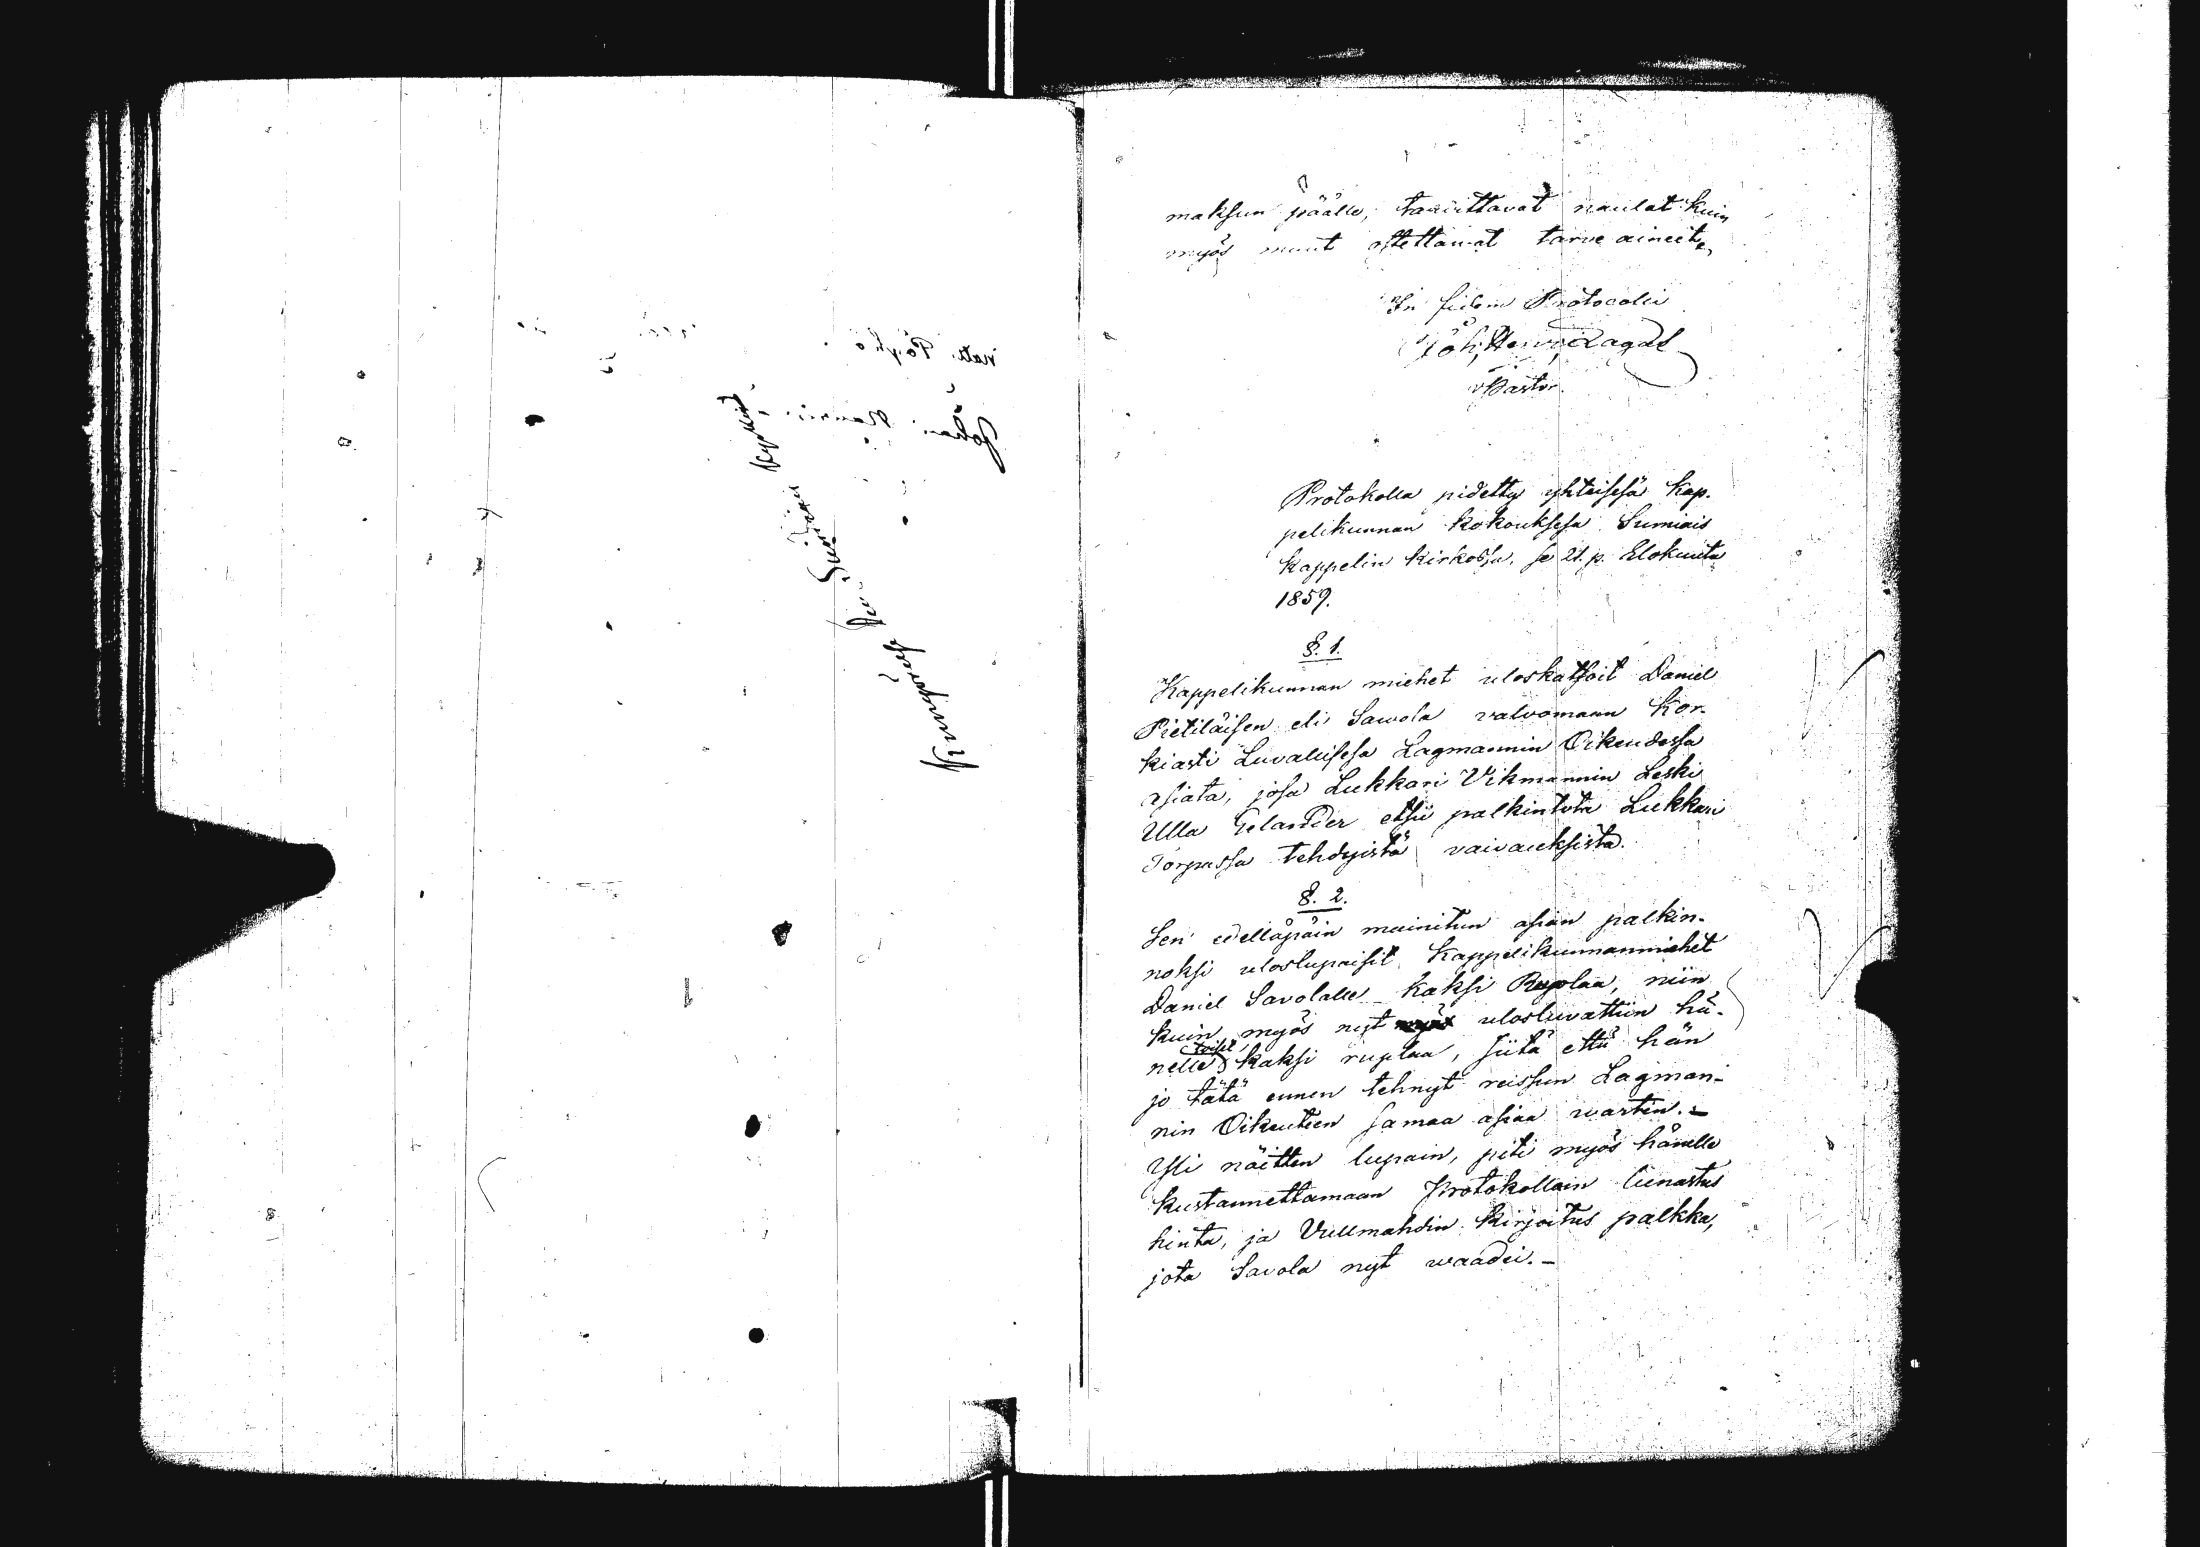 maksun päälle, tarvittavat naulat kuin
myös muut ostettavat tarve aineita,
In fidem Protocolli
Joh, Herm, Lagus
vPastor.
Protokolla pidetty yhteisesä Kap-
pelikunnan kokouksesa Sumiais
Kappelin Kirkossa, se 21. p. Elokuuta
1859.
§. 1.
Kappelikunnan miehet uloskatsoit Daniel
Pietiläisen eli Sawola valvomaan Kor-
kiasti Luvallisesa Lagmannin Oikeudessa
asiata, josa Lukkari Vikmannin Leski
Ulla Gelander etsii palkintota Lukkari
Torpassa tehdyistä vaivauksista.
§. 2.
Sen edelläpäin mainitun asian palkin-
noksi uloslupaisit Kappelikunnanmiehet
Daniel Savolalle kaksi Ruplaa, niin
kuin myös nyt myös ulosluvattiin hä-
toiset
nelle kaksi ruplaa, siitä että hän
jo tätä ennen tehnyt reissun Lagman-
nin Oikeuteen samaa asiaa warten. -
Yli näitten lupain, piti myös hänelle
kustannettamaan Protokollain lunastus
hinta, ja Vullmahdin kirjoitus palkka,
jota Savola nyt waadei. -